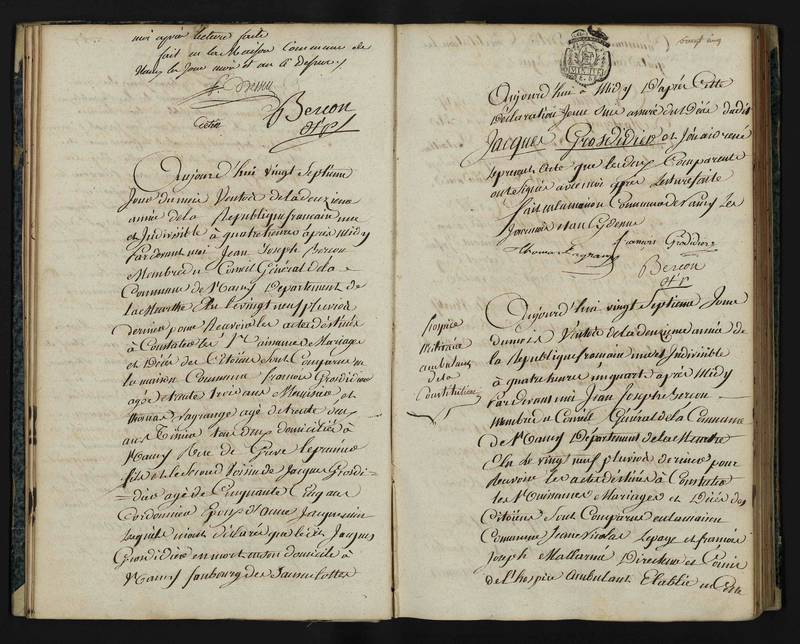 moi après lecture faite
fait en la Maison Commune de
Nancy les Jour mois et an ci dessus
Bercon
off p
Aujourd'hui vingt Septieme
Jour du mois Ventose de la deuxieme
année de la Republique francaise une
et Indivisible à quatre heures après Midy
Pardevant moi Jean Joseph Bercon
Membre du Conseil Général de la
Commune de Nancy Departement de
la Meurthe Elu le vingt neuf pluviose
dernier pour Recevoir les actes destinés
à Constater les Naissances Mariages
et Décès des Citoiens sont Comparus en
la maison Commune francois Grosdidier
agé de trente trois ans Menuisier et
thomas Lagrange agé de trente deux
ans tous deux domiciliés à
Nancy Rue de Greve le premier
fils et le second voisin de Jacques Grosdi-
dier agé de Cinquante Cinq ans
Cordonnier Epoux d'Anne Jacquemin
lesquels m'ont déclarés que ledit Jacques
Grosdidier est mort en son domicile à
Nancy faubourg des
vingt cinq
Aujourd'hui à Midy D'après Cette
Declaration Je me suis assuré du Décès dudit
Jacques Grosdidier et J'en ai redigé
le present acte que les deux Comparants
ont signés avec moi après Lecture faite
fait en la maison Commune de Nancy Les
Jour mois et an cy dessus
thomas Lagrange francois Grosdidier
Bercon
off p
Hospice
Militaire
ambulant
de la
Constitution
Aujourd'hui vingt Septieme Jour
du mois Ventose de la deuxieme année de
la Republique francaise une et Indivisible
à quatre heures un quart après Midy
Pardevant moi Jean Joseph Bercon
Membre du Conseil Général de la Commune
de Nancy Departement de la Meurthe
Elu le vingt neuf pluviose dernier pour
recevoir les actes destinés à Constater
les Naissances Mariages et Décès des
Citoiens sont Comparus en la maison
Commune Jean Nicolas Lepage et francois
Joseph Mallarmé Directeur et Commis
de l'hospice ambulant Etablie en Cette